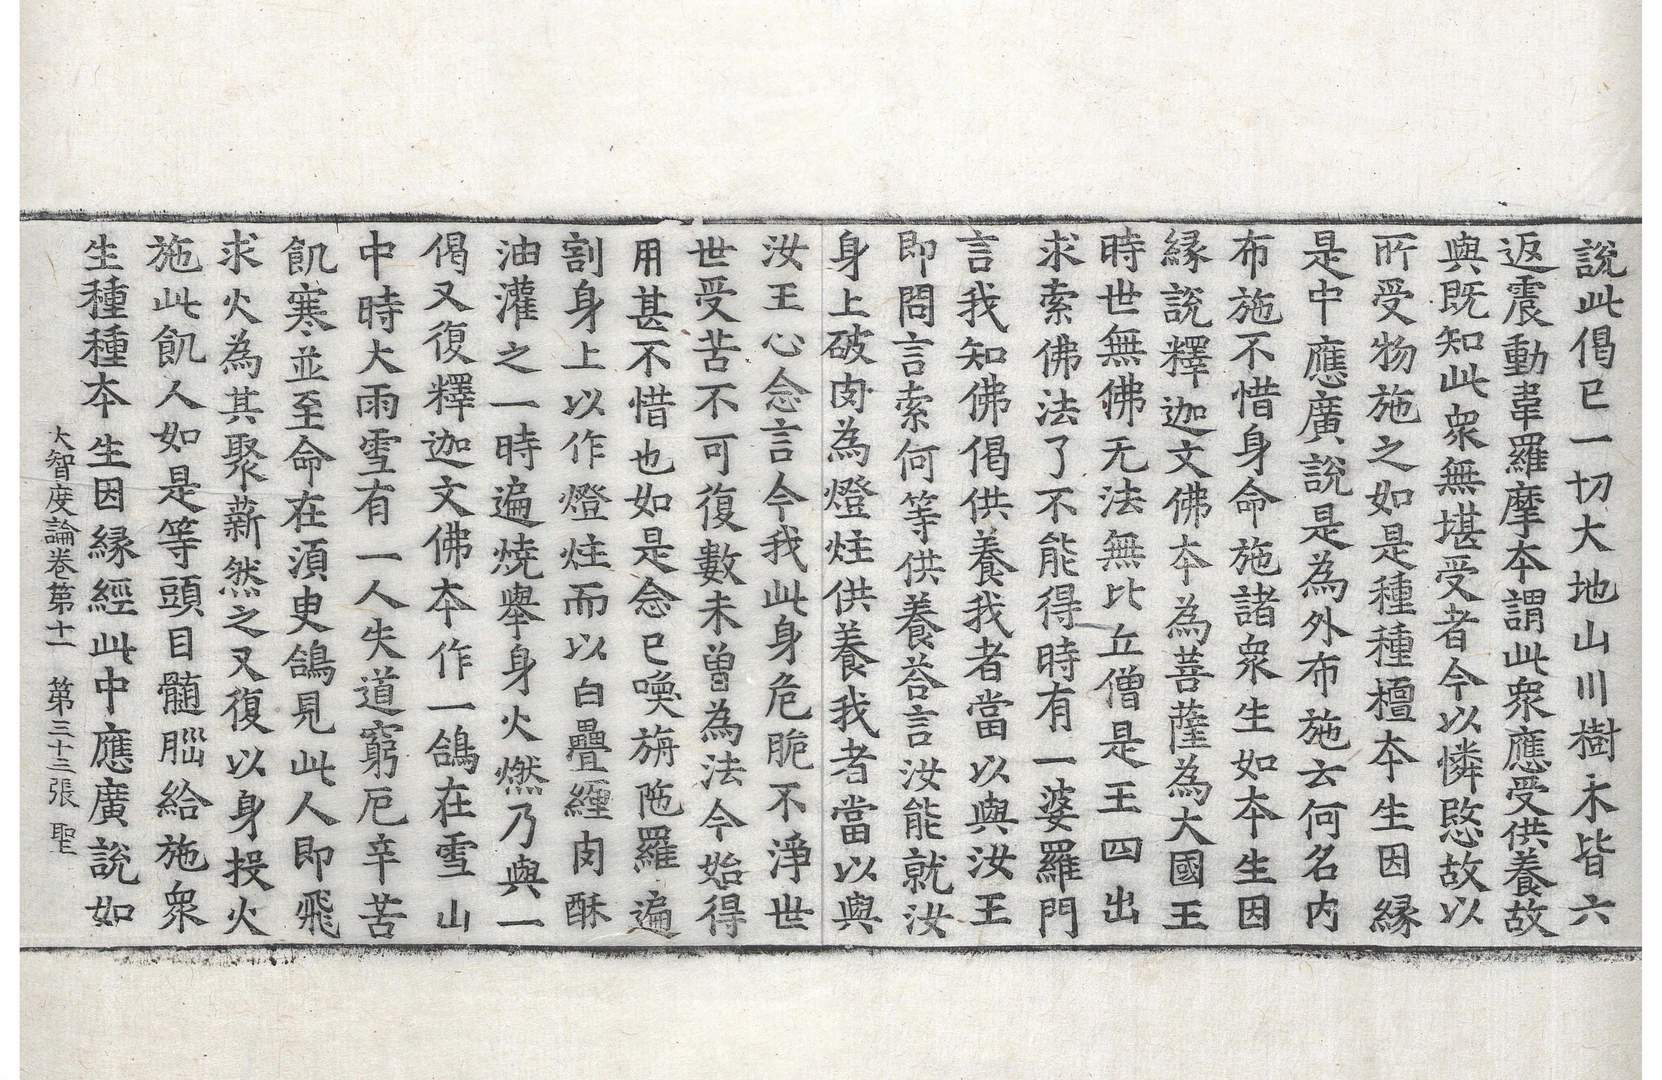 說此偈已一切大地山川樹木皆六
返震動韋羅摩本謂此衆應受供養故
與既知此衆無堪受者今以憐愍故以
所受物施之如是種種檀本生因緣
是中應廣說是為外布施云何名内
布施不惜身命施諸衆生如本生因
緣說釋迦文佛本為菩薩為大國王
時世無佛无法無比丘僧是王四出
求索佛法了不能得時有一婆羅門
言我知佛偈供養我者當以與汝王
即問言索何等供養荅言汝能就汝
身上破肉為燈炷供養我者當以與
汝王心念言今我此身危脆不淨世
世受苦不可復數未曽為法今始得
用甚不惜也如是念已喚旃陁羅遍
割身上以作燈炷而以白疊纏肉酥
油灌之一時遍燒舉身火燃乃與一
偈又復釋迦文佛本作一鴿在雪山
中時大雨雪有一人失道窮厄辛苦
飢寒並至命在須臾鴿見此人即飛
求火為其聚薪然之又復以身投火
施此飢人如是等頭目髓𦛁給施衆
生種種本生因緣經此中應廣說如
大智度論卷第十一　第三十三張　聖